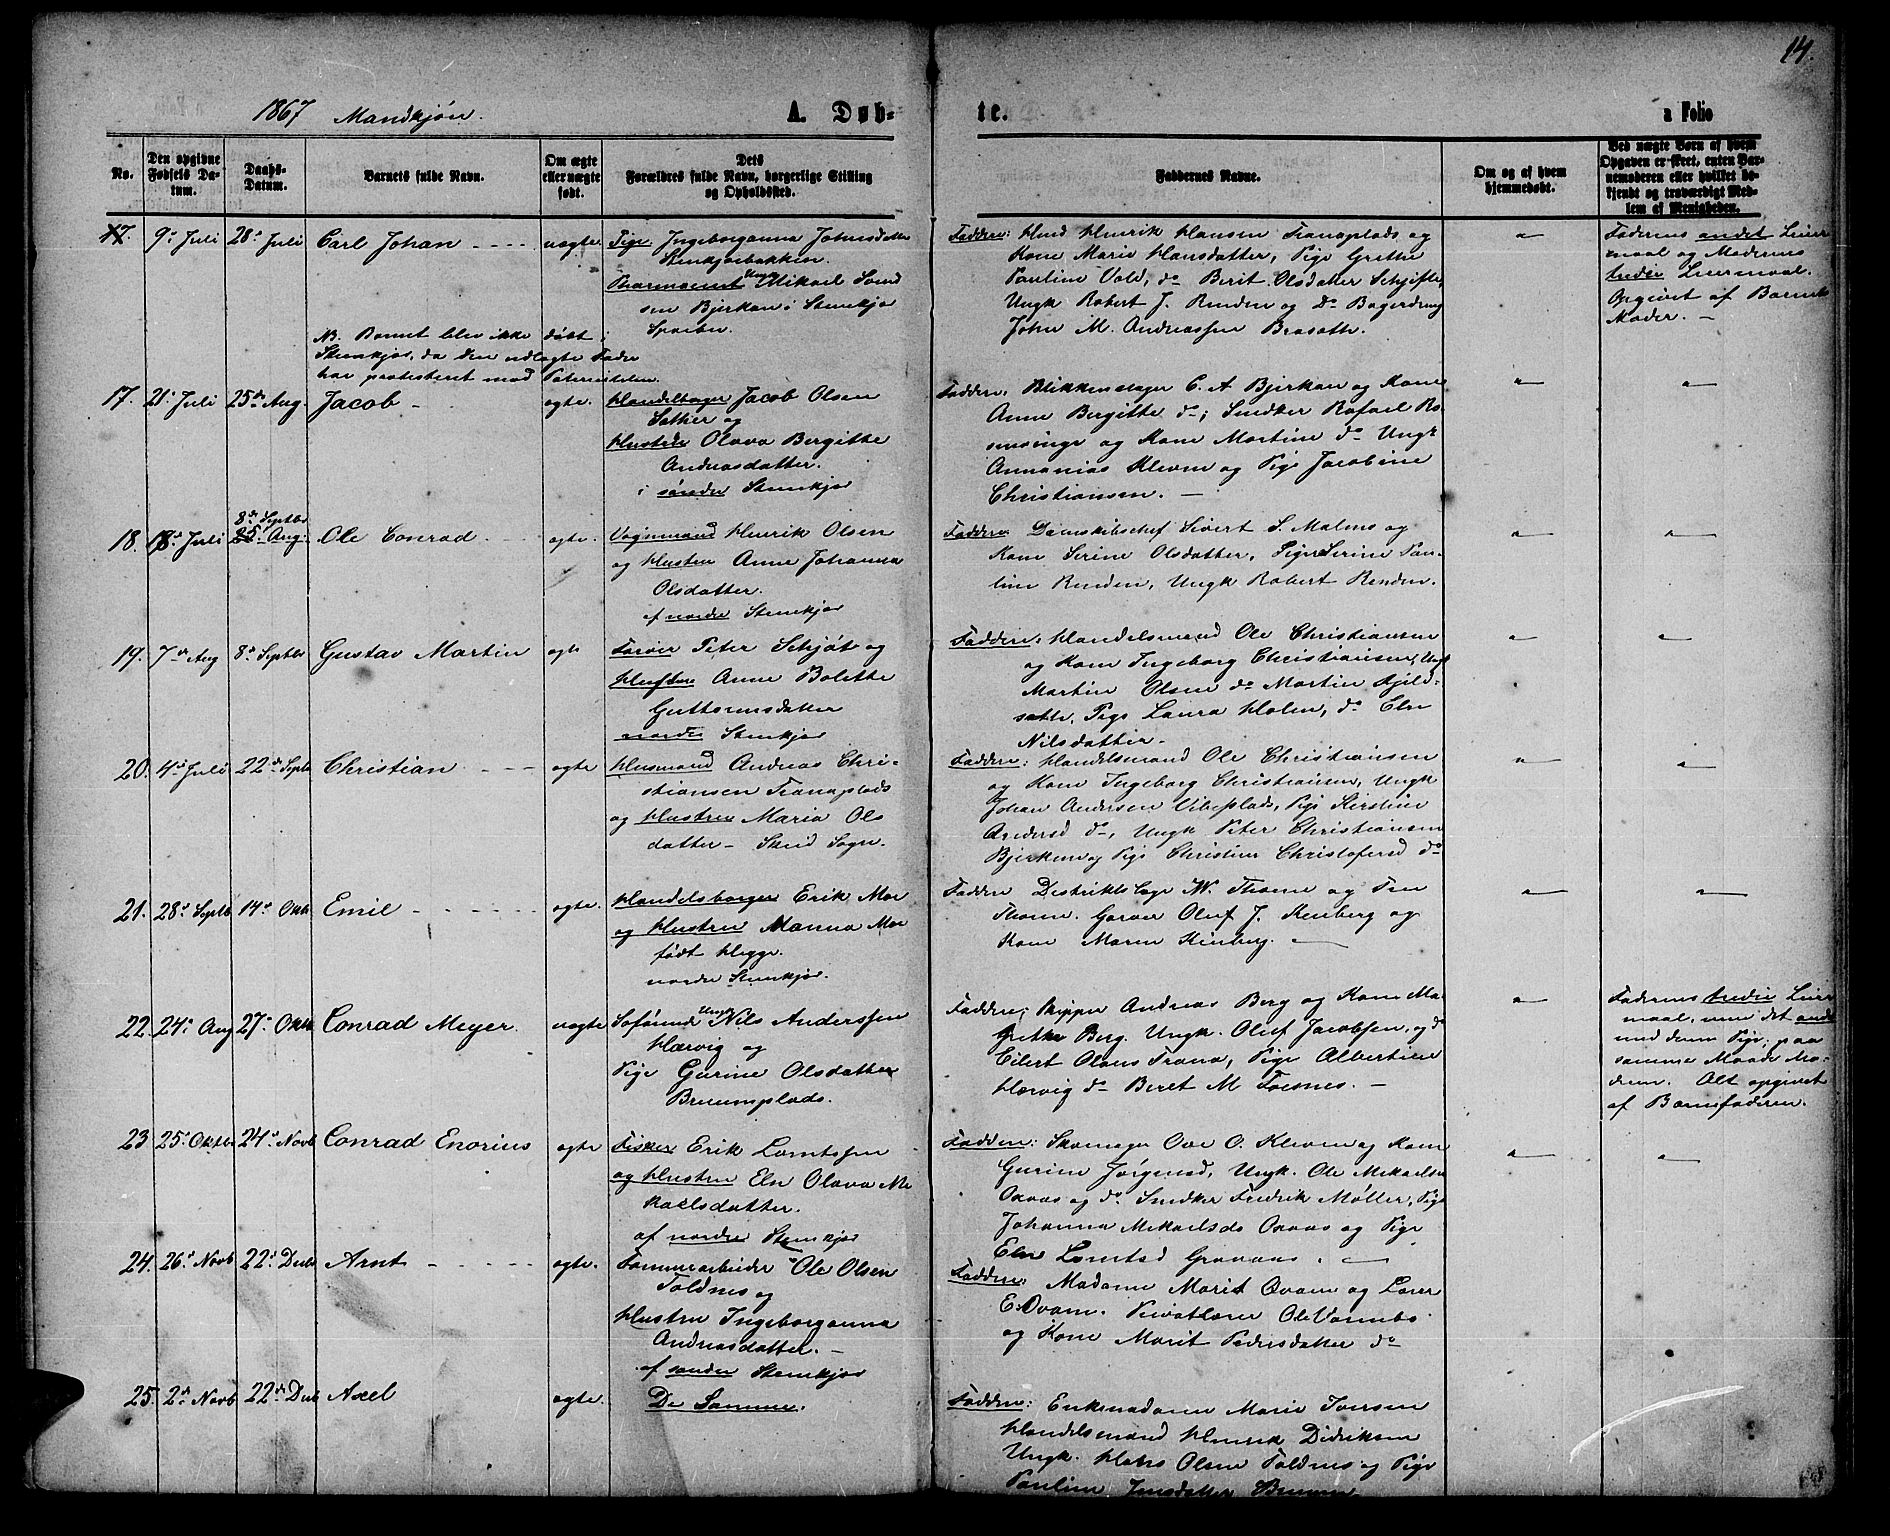 14.
1867 Mandkjøn.
A. Døb-
te.
a Folio
No.
Den opgivne Fødsels Datum.
Daabs-Datum.
Barnets fulde Navn.
Om ægte eller uægte født.
Dets Forældres fulde Navn, borgerlige Stilling og Opholdssted.
Faddernes Navne.
Om og af hvem hjemmedøbt.
Ved uægte Børn af hvem Opgaven er skeet, enten Barnemoderen eller hvilket bekjendt og troværdigt Medlem af Menigheden.
17. 9de Juli 28de Juli Carl Johan uægte
Pige Ingeborganna Johnsdatter
Stenkjærbakken.
Barnearret Ungk Mikael Svend
sen Bjerkan i Stenkjær
Sparbu.
NB. Barnet blev ikke døbt i
Stenkjær, da den udlagte Fader
har protesteret mod Paterniteten.
Faddere: Husmd Henrik Hansen Tranaplads og
Kone Marie Hansdatter, Pige Grethe
Pauline Vold, do Berit Olsdatter Schjefte,
Ungk Robert J. Renden og Do Bagerdreng
John M. Andreassen Brasøth.
Faderens andet Leier
maal og Moderens
tredie Leiermaal.
Opgivet af Barnets
Moder.
17. 21de Juli 25de Aug. Jacob ægte.
Handelsbager Jacob Olsen
Sather og
Hustru Olava Bergitte
Andreasdatter.
i søndre Stenkjær
Faddere: Blikkenslager C. A. Bjerkan og Kone
Anne Bergitte do; Snedker Rafael Ro
senvinge og Kone Martine do Ungk
Annanias Klevem og Pige Jacobine
Christiansen.
18. 18de Juli 8de Septbr 25 Aug. Ole Conrad ægte.
Vognmand Henrik Olsen
og Hustru Anne Johanna
Olsdatter.
af nordre Stenkjær
Faddere Dampskibschef Sivert S. Malmo og
Kone Serine Olsdatter, Pige Serine Pau-
line Renden, Ungk Robert Renden.
19. 7de Aug 8de Septbr Gustav Martin ægte
Farver Peter Schjøt og
Hustru Anne Bolette
Guttormsdatter
nordre Stenkjær
Faddere: Handelsmand Ole Christiansen
og Kone Ingeborg Christiansen, Ungk
Martin Olsen do Martin Kjeld-
sæth. Pige Laura Holen, do Elen
Nilsdatter.
20. 4de Juli 22de Septb Christian ægte
Husmand Andreas Chri-
stiansen Tranaplads
og Hustru Maria Ols
datter - Skeid Sogn.
Faddere: Handelsmand Ole Christiansen
og Kone Ingeborg Christiansen, Ungk
Johan Andersen Vibeplads, Pige Kirstine
Andersd do, Ungk Peter Christiansen
Bjerkem og Pige Christine Christofersd do
21. 28de Septb. 14de Oktb. Emil ægte.
Handelsborger Erik Moe
og Hustru Manna Moe
født Hegge.
nordre Stenkjær.
Faddere Distriktslæge W. Thome og Fru
Thome. Garver Oluf J. Kenberg og
Kone Maren Kinberg.
22. 24de Aug 27de Oktb. Conrad Meyer. uægte
Søførend Ungk Nils Anderssen
Hærvig og
Pige Gurine Olsdatter
Bruemplads.
Faddere; Skipper Andreas Berg og Kone Ma
Grethe Berg. Ungk. Oluf Jacobsen, og do
Eilert Olaus Trana, Pige Albertine
Hærvig do Beret M Fosnes.
Faderens tredie Leier
maal, men det andet
med denne Pige, paa
samme Maade Mo-
deren. Alt opgivet
af Barnefaderen.
23 25de Oktb. 24de Novb Conrad Enorius ægte
Fisker Erik Lorntssen
og Hustru Eln Olava Mi
kaelsdatter.
af nordre Stenkjær
Faddere: Skomager Ove O. Klevem og Kone
Gurine Jørgensd, Ungk. Ole Mikaelsen
Oxaas og do Snedker Fredrik Møller, Pige
Johanna Mikaelsd Oxaas og Pige
Eln Lorntsd Gravaas.
24. 26de Novb 22de Decb. Arnt ægte.
Tømmerarbeider Ole Olsen
Foldnes og
Hustru Ingeborganna
Andreasdatter.
af søndre Stenkjær
Faddere: Madame Marit Qvam og Lærer
E. Qvam. Privatlærer Ole Vannebo
og Kone Marit Pedersdatter do
25. 2de Novb 22de Decb Axel ægte.
De Samme.
Faddere: Enkemadame Marie Iversen
Handelsmand Henrik Didriksen
Ungk. Hans Olsen Foldnes og Pige
Pauline Jensdatter Bruem